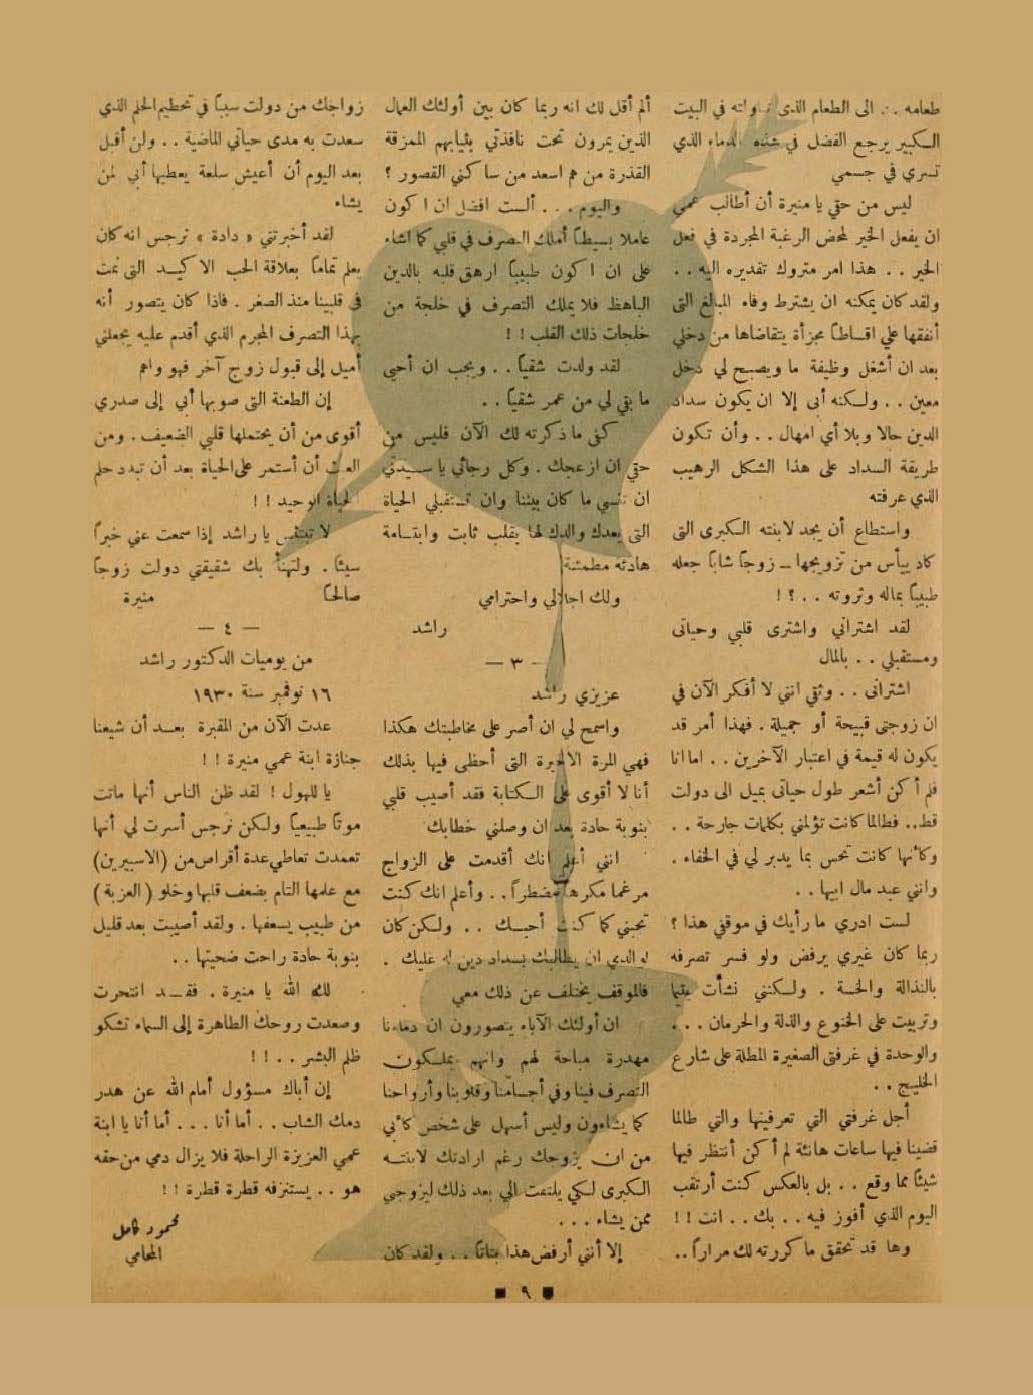 طعامه .. الى الطعام الذى تناولته في البيت
الكبير يرجع الفضل في هذه الدماء الذي
تسري في جسمي
ليس من حقي يا منيرة أن أطالب عمي
ان يفعل الخير لمحض الرغبة المجردة في فعل
الخير .. هذا امر متروك تقديره اليه ..
ولقد كان يمكنه ان يشترط وفاء المبالغ التى
أنفقها علي اقساطاً مجزأة يتقاضاها من دخلي
بعد ان أشغل وظيفة ما ويصبح لي دخل
معين .. ولكنه أبى إلا ان يكون سداد
الدين حالا وبلا أي امهال .. وأن تكون
طريقة السداد على هذا الشكل الرهيب
الذي عرفته
واستطاع أن يجد لابنته الكبرى التى
كاد ييأس من تزويجها ـ زوجاً شاباً جعله
طبيباً بماله وثروته .. ؟ !
لقد اشتراني واشترى قلبي وحياتى
ومستقبلي .. بالمال
اشترانى .. وثقي انني لا أفكر الآن في
ان زوجتى قبيحة أو جميلة . فهذا أمر قد
يكون له قيمة في اعتبار الآخرين .. اما انا
فلم أكن أشعر طول حياتى بميل الى دولت
قط .. فطالما كانت تؤلمني بكلمات جارحة ..
وكانها كانت تحس بما يدبر لي في الخفاء .
وانني عبد مال ابيها ..
لست ادري ما رأيك في موقفي هذا ؟
ربما كان غيري يرفض ولو فسر تصرفه
بالنذالة والخسة . ولكنني نشأت يتيما
وتربيت على الخنوع والذلة والحرمان ...
والوحدة في غرفتى الصغيرة المطلة على شارع
الخليج ..
أجل غرفتي التي تعرفينها والتي طالما
قضينا فيها ساعات هانئة لم أكن أنتظر فيها
شيئاً مما وقع .. بل بالعكس كنت أرتقب
اليوم الذي أفوز فيه .. بك .. انت ! !
وها قد تحقق ما كررته لك مراراً ..
ألم أقل لك انه ربما كان بين أولئك العمال
الذين يمرون تحت نافذتي بثيابهم الممزقة
القذرة من هم اسعد من ساكني القصور ؟
واليوم ... ألست افضل ان اكون
عاملا بسيطاً أملك التصرف في قلبي كما اشاء
على ان اكون طبيباً ارهق قلبه بالدين
الباهظ فلا يملك التصرف في خلجة من
خلجات ذلك القلب ! !
لقد ولدت شقياً .. ويجب ان أحيى
ما بقي لي من عمر شقياً ..
كفى ما ذكرته لك الآن فليس من
حقي ان ازعجك . وكل رجائي يا سيدتي
ان تنسي ما كان بيننا وان تستقبلي الحياة
التى يعدك والدك لها بقلب ثابت وابتسامة
هادئه مطمئنة
ولك اجلالي واحترامي
راشد
— ٣ —
عزيزي راشد
واسمح لي ان أصر على مخاطبتك هكذا
فهي المرة الاخيرة التى أحظى فيها بذلك
أنا لا أقوى على الكتابة فقد أصيب قلبي
بنوبة حادة بعد ان وصلني خطابك
انني أعلم انك أقدمت على الزواج
مرغما مكرهاً مضطراً .. وأعلم انك كنت
تحبني كما كنت أحبك .. ولكن كان
لوالدي ان يطالبك بسداد دين له عليك .
فالموقف يختلف عن ذلك معي
ان أولئك الآباء يتصورون ان دماءنا
مهدرة مباحة لهم وانهم يملكون
التصرف فينا وفي أجسامنا وقلوبنا وأرواحنا
كما يشاءون وليس أسهل على شخص كأبي
من ان يزوجك رغم ارادتك لابنته
الكبرى لكي يلتفت الي بعد ذلك ليزوجي
ممن يشاء ...
إلا أنني أرفض هذا بتاتاً .. ولقد كان
زواجك من دولت سبباً في تحطيم الحلم الذي
سعدت به مدى حياتي الماضية .. ولن أقبل
بعد اليوم أن أعيش سلعة يعطيها أبي لمن
يشاء
لقد أخبرتني « دادة » نرجس انه كان
يعلم تماماً بعلاقة الحب الاكيد التى نمت
في قلبينا منذ الصغر . فاذا كان يتصور أنه
بهذا التصرف المجرم الذي أقدم عليه يجعلني
أميل إلى قبول زوج آخر فهو واهم
إن الطعنة التى صوبها أبي إلى صدري
أقوى من أن يحتملها قلبي الضعيف . ومن
العبث أن أستمر على الحياة بعد أن تبدد حلم
الحياة الوحيد ! !
لا تبتئس يا راشد إذا سمعت عني خبراً
سيئاً . ولتهنأ بك شقيقتي دولت زوجاً
صالحاً منيرة
— ٤ —
من يوميات الدكتور راشد
١٦ نوفمبر سنة ١٩٣٠
عدت الآن من المقبرة بعد أن شيعنا
جنازة ابنة عمي منيرة ! !
يا للهول ! لقد ظن الناس أنها ماتت
موتاً طبيعياً ولكن نرجس أسرت لي أنها
تعمدت تعاطي عدة أقراص من (الاسبيرين)
مع علمها التام بضعف قلبها وخلو (العزبة)
من طبيب يسعفها . ولقد أصيبت بعد قليل
بنوبة حادة راحت ضحيتها ..
لك الله يا منيرة . فقد انتحرت
وصعدت روحك الطاهرة إلى السماء تشكو
ظلم البشر .. ! !
إن أباك مسؤول أمام الله عن هدر
دمك الشاب .. أما أنا ... أما أنا يا ابنة
عمي العزيزة الراحلة فلا يزال دمي من حقه
هو .. يستنزفه قطرة قطرة ! !
محمود كامل
المحامي
٩